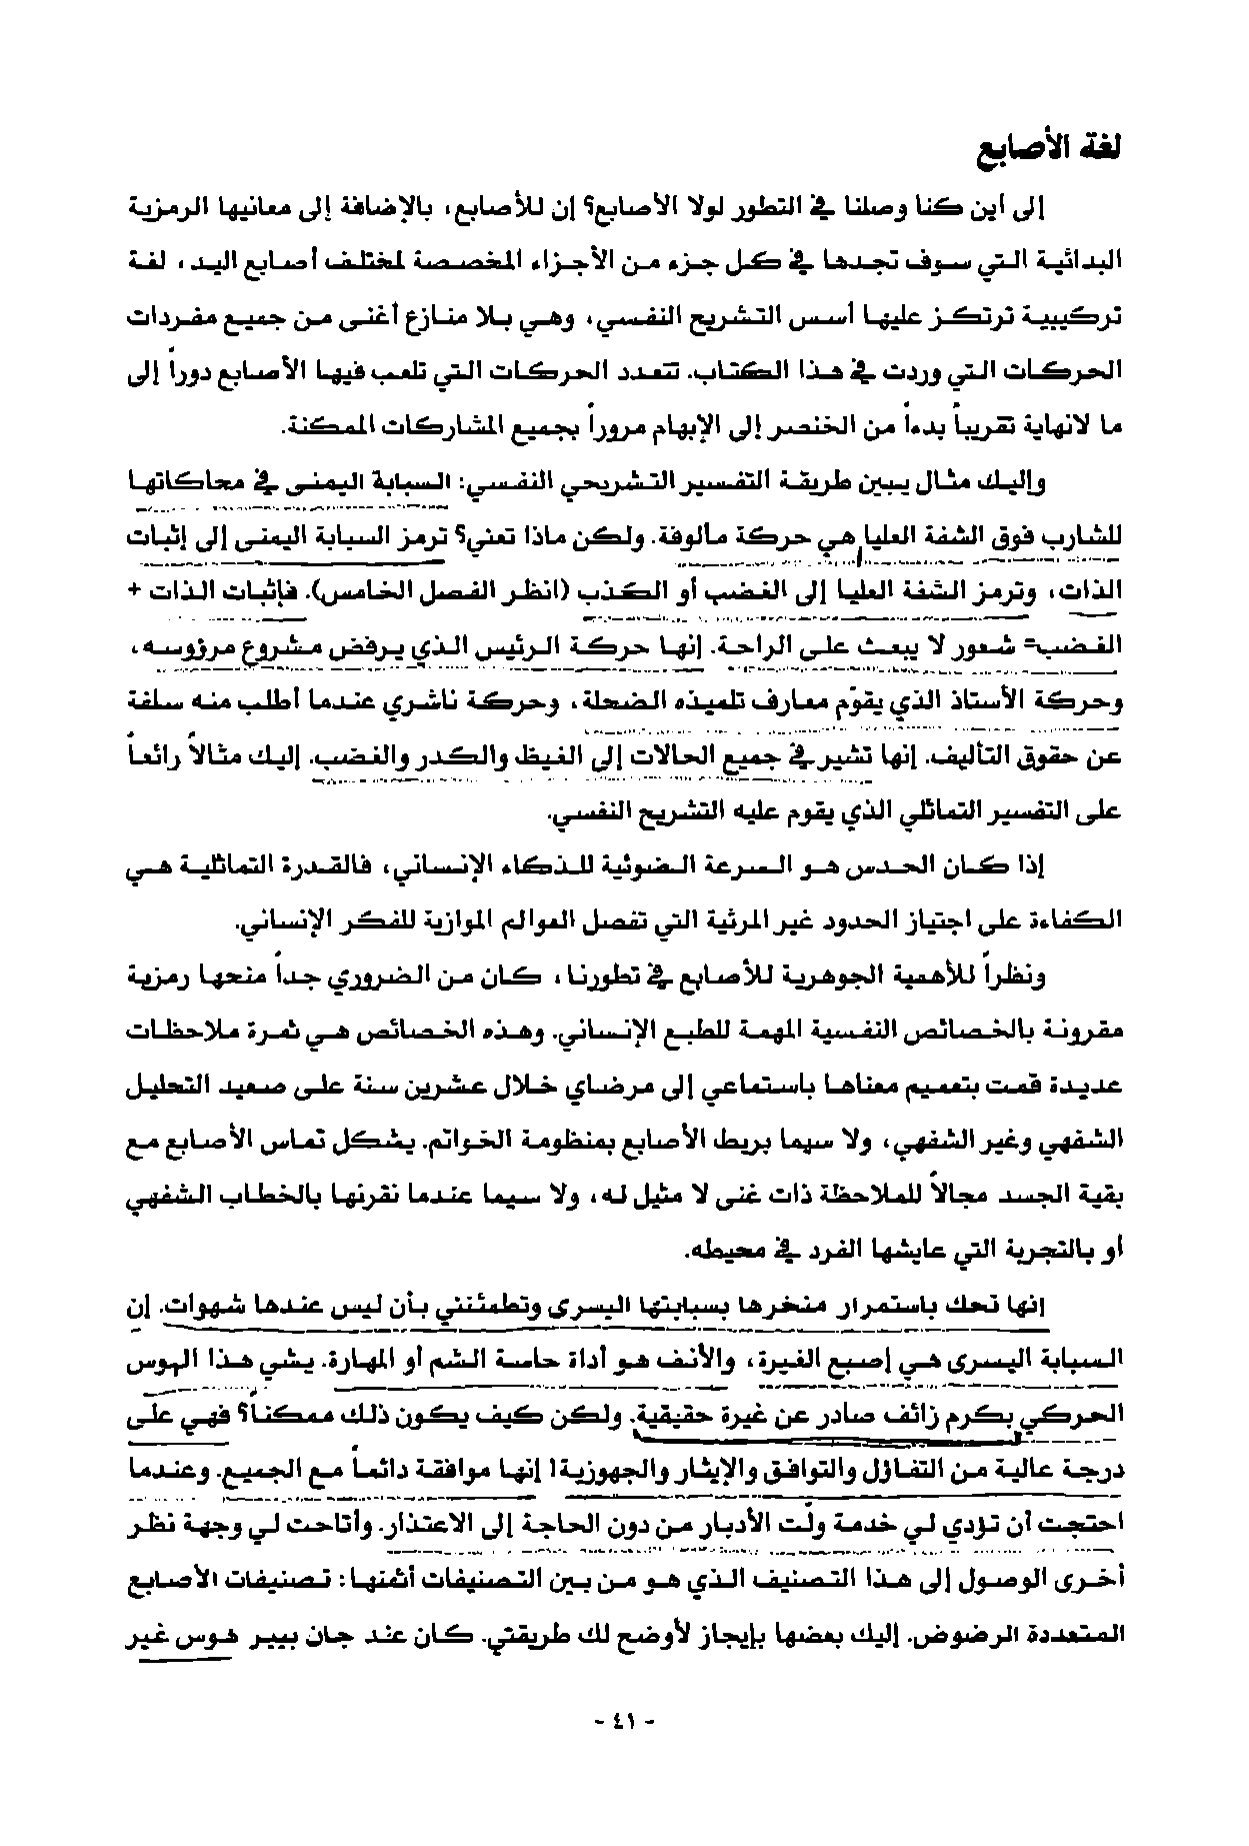 لغة الأصابع
إلى أين كنا وصلنا في التطور لولا الأصابع؟ إن للأصابع، بالإضافة إلى معانيها الرمزية
البدائية التي سوف تجدها في كل جزء من الأجزاء المخصصة لمختلف أصابع اليد، لغة
تركيبية ترتكز عليها أسس التشريح النفسي، وهي بلا منازع أغنى من جميع مفردات
الحركات التي وردت في هذا الكتاب. تتعدد الحركات التي تلعب فيها الأصابع دوراً إلى
ما لانهاية تقريباً بدءاً من الخنصر إلى الإبهام مروراً بجميع المشاركات الممكنة.
وإليك مثال يبين طريقة التفسير التشريحي النفسي: السبابة اليمنى في محاكاتها
للشارب فوق الشفة العليا هي حركة مألوفة. ولكن ماذا تعني؟ ترمز السبابة اليمنى إلى إثبات
الذات، وترمز الشفة العليا إلى الغضب أو الكذب (انظر الفصل الخامس). فإثبات الذات +
الغضب= شعور لا يبعث على الراحة. إنها حركة الرئيس الذي يرفض مشروع مرؤوسه،
وحركة الأستاذ الذي يقوّم معارف تلميذه الضحلة، وحركة ناشري عندما أطلب منه سلفة
عن حقوق التأليف. إنها تشير في جميع الحالات إلى الغيظ والكدر والغضب. إليك مثالاً رائعاً
على التفسير التماثلي الذي يقوم عليه التشريح النفسي.
إذا كان الحدس هو السرعة الضوئية للذكاء الإنساني، فالقدرة التماثلية هي
الكفاءة على اجتياز الحدود غير المرئية التي تفصل العوالم الموازية للفكر الإنساني.
ونظراً للأهمية الجوهرية للأصابع في تطورنا، كان من الضروري جداً منحها رمزية
مقرونة بالخصائص النفسية المهمة للطبع الإنساني. وهذه الخصائص هي ثمرة ملاحظات
عديدة قمت بتعميم معناها باستماعي إلى مرضاي خلال عشرين سنة على صعيد التحليل
الشفهي وغير الشفهي، ولا سيما بربط الأصابع بمنظومة الخواتم. يشكل تماس الأصابع مع
بقية الجسد مجالاً للملاحظة ذات غنى لا مثيل له، ولا سيما عندما نقرنها بالخطاب الشفهي
أو بالتجربة التي عايشها الفرد في محيطه.
إنها تحك باستمرار منخرها بسبابتها اليسرى وتطمئنني بأن ليس عندها شهوات. إن
السبابة اليسرى هي إصبع الغيرة، والأنف هو أداة حاسة الشم أو المهارة. يشي هذا الهوس
الحركي بكرم زائف صادر عن غيرة حقيقية. ولكن كيف يكون ذلك ممكناً؟ فهي على
درجة عالية من التفاؤل والتوافق والإيثار والجهوزية! إنها موافقة دائماً مع الجميع. وعندما
احتجت أن تؤدي لي خدمة ولّت الأدبار من دون الحاجة إلى الاعتذار. وأتاحت لي وجهة نظر
أخرى الوصول إلى هذا التصنيف الذي هو من بين التصنيفات أثمنها: تصنيفات الأصابع
المتعددة الرضوض. إليك بعضها بإيجاز لأوضح لك طريقتي. كان عند جان بيير هوس غير
- ٤١ -